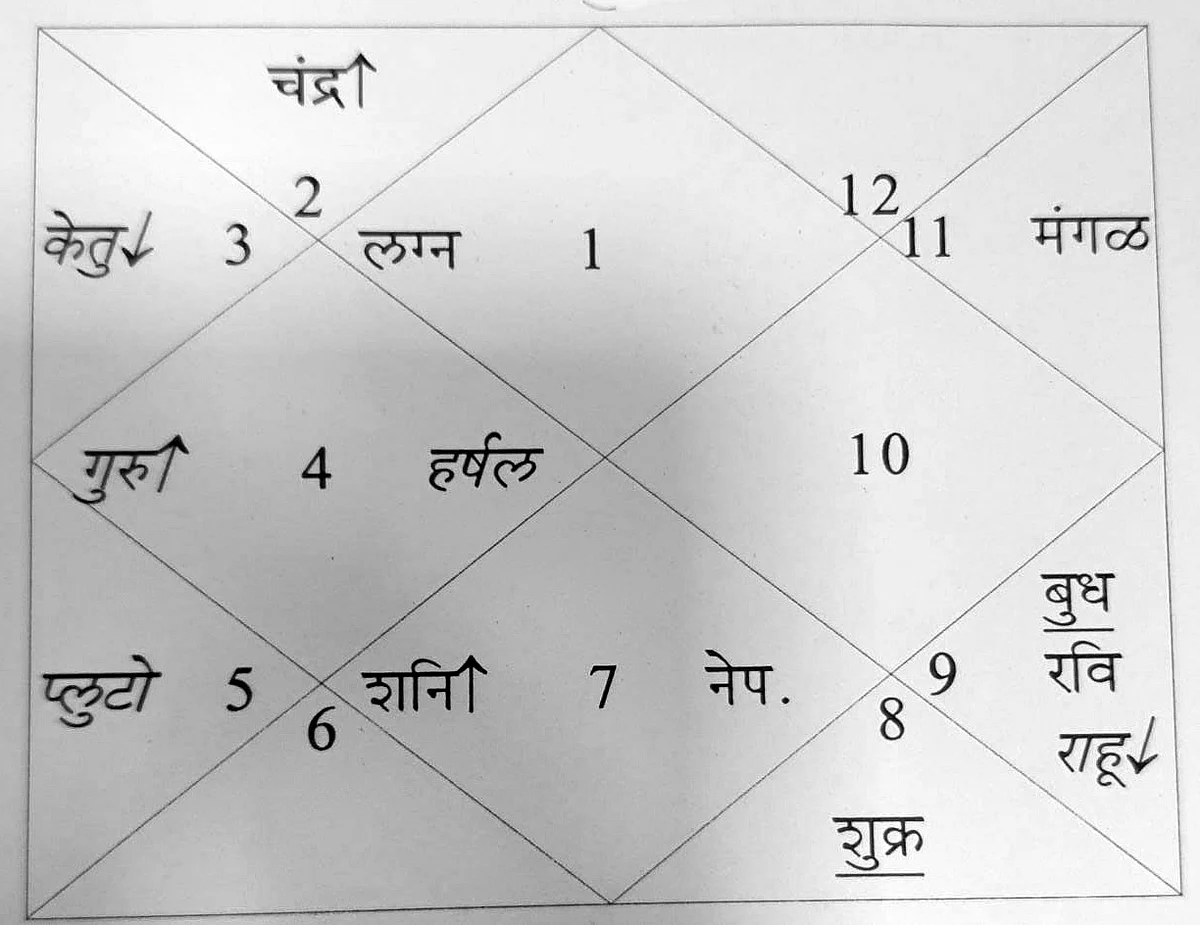 चंद्र↑
2 12
केतु↓ 3 लग्न 1 11 मंगळ
गुरु↑ 4 हर्षल 10
बुध
प्लुटो 5 शनि↑ 7 नेप. 9 रवि
6 8
राहू↓
शुक्र